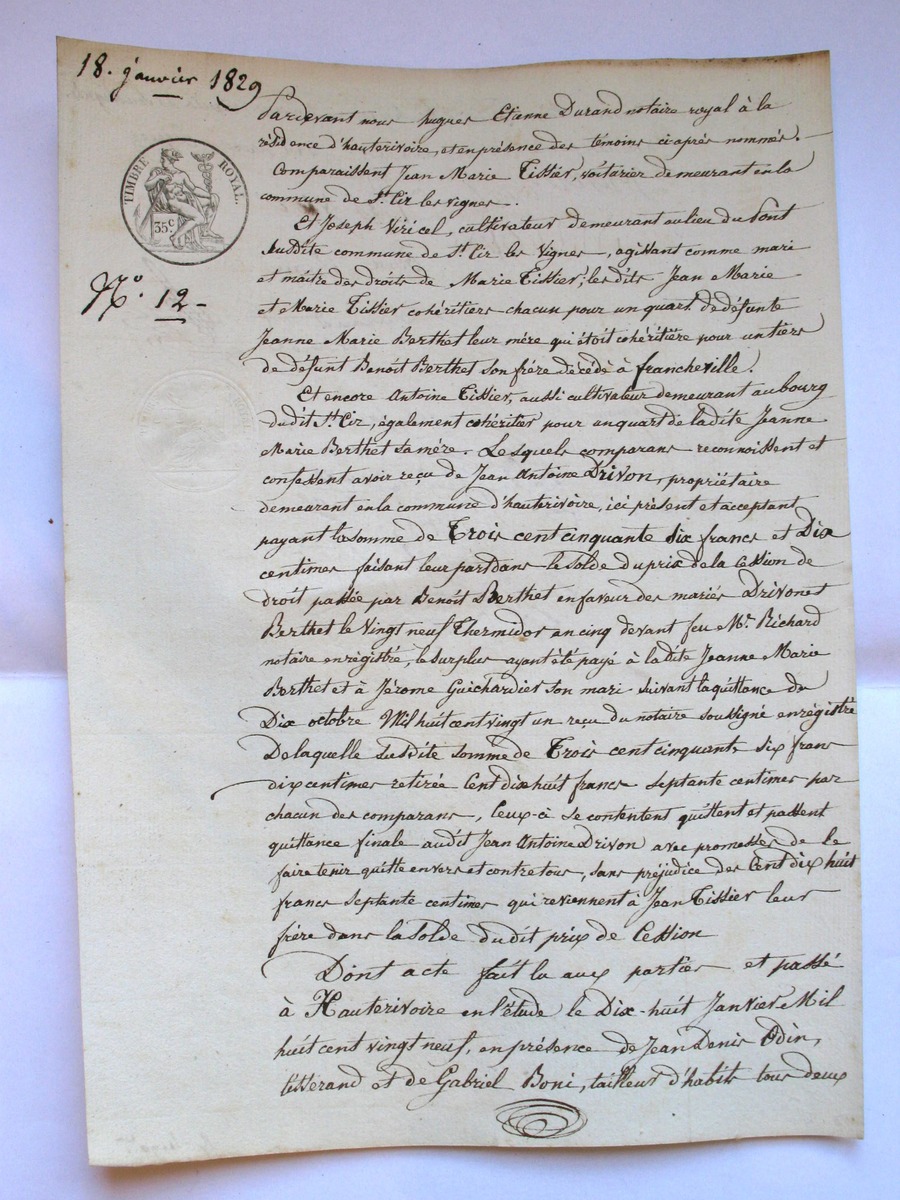 18. janvier 1829
TIMBRE ROYAL.
35c
No. 12 -
Pardevant nous hugues Etienne Durand notaire royal à la
résidence d'hauterivoire, et en présence des témoins ci-après nommés.
Comparaissent Jean Marie Tissier, voiturier demeurant en la
commune de St. Cir les vignes.
Et Joseph Viricel, cultivateur demeurant au lieu du Pont
susdite commune de St. Cir les Vignes, agissant comme mari
et maitre des droits de Marie Tissier; les dits Jean Marie
et Marie Tissier cohéritiers chacun pour un quart de défunte
Jeanne Marie Berthet leur mère qui étoit cohéritière pour un tiers
de défunt Benoit Berthet son frère décédé à francheville.
Et encore Antoine Tissier, aussi cultivateur demeurant au bourg
du dit St. Cir, également cohéritier pour un quart de la dite Jeanne
Marie Berthet sa mère. Lesquels comparans reconnoissent et
confessent avoir reçu de Jean Antoine Drivon, propriétaire
demeurant en la commune d'hauterivoire, ici présent et acceptant
payant la somme de Trois cent cinquante six francs et Dix
centimes faisant leur part dans le solde du prix de la cession de
droit passée par Benoit Berthet en faveur des mariés Drivon et
Berthet le vingt neuf Thermidor an cinq devant feu Me. Richard
notaire enrégistré, le surplus ayant été payé à la dite Jeanne Marie
Berthet et à Jérome Guichardier son mari suivant la quittance du
Dix octobre Mil huit cent vingt un reçu du notaire soussigné enrégistré
De laquelle susdite somme de Trois cent cinquante six francs
dix centimes retirée Cent dix huit francs septante centimes par
chacun des comparans, Ceux-ci se contentent quittent et passent
quittance finale au dit Jean Antoine Drivon avec promesses de le
faire tenir quitte envers et contre tous, sans préjudice des Cent dix huit
francs septante centimes qui reviennent à Jean Tissier leur
frère dans la solde du dit prix de Cession
Dont acte fait lu aux parties et passé
à Hauterivoire en l'étude le Dix-huit Janvier Mil
huit cent vingt neuf, en présence de Jean Denis Odin,
tisserand et de Gabriel Boni, tailleur d'habits tous deux